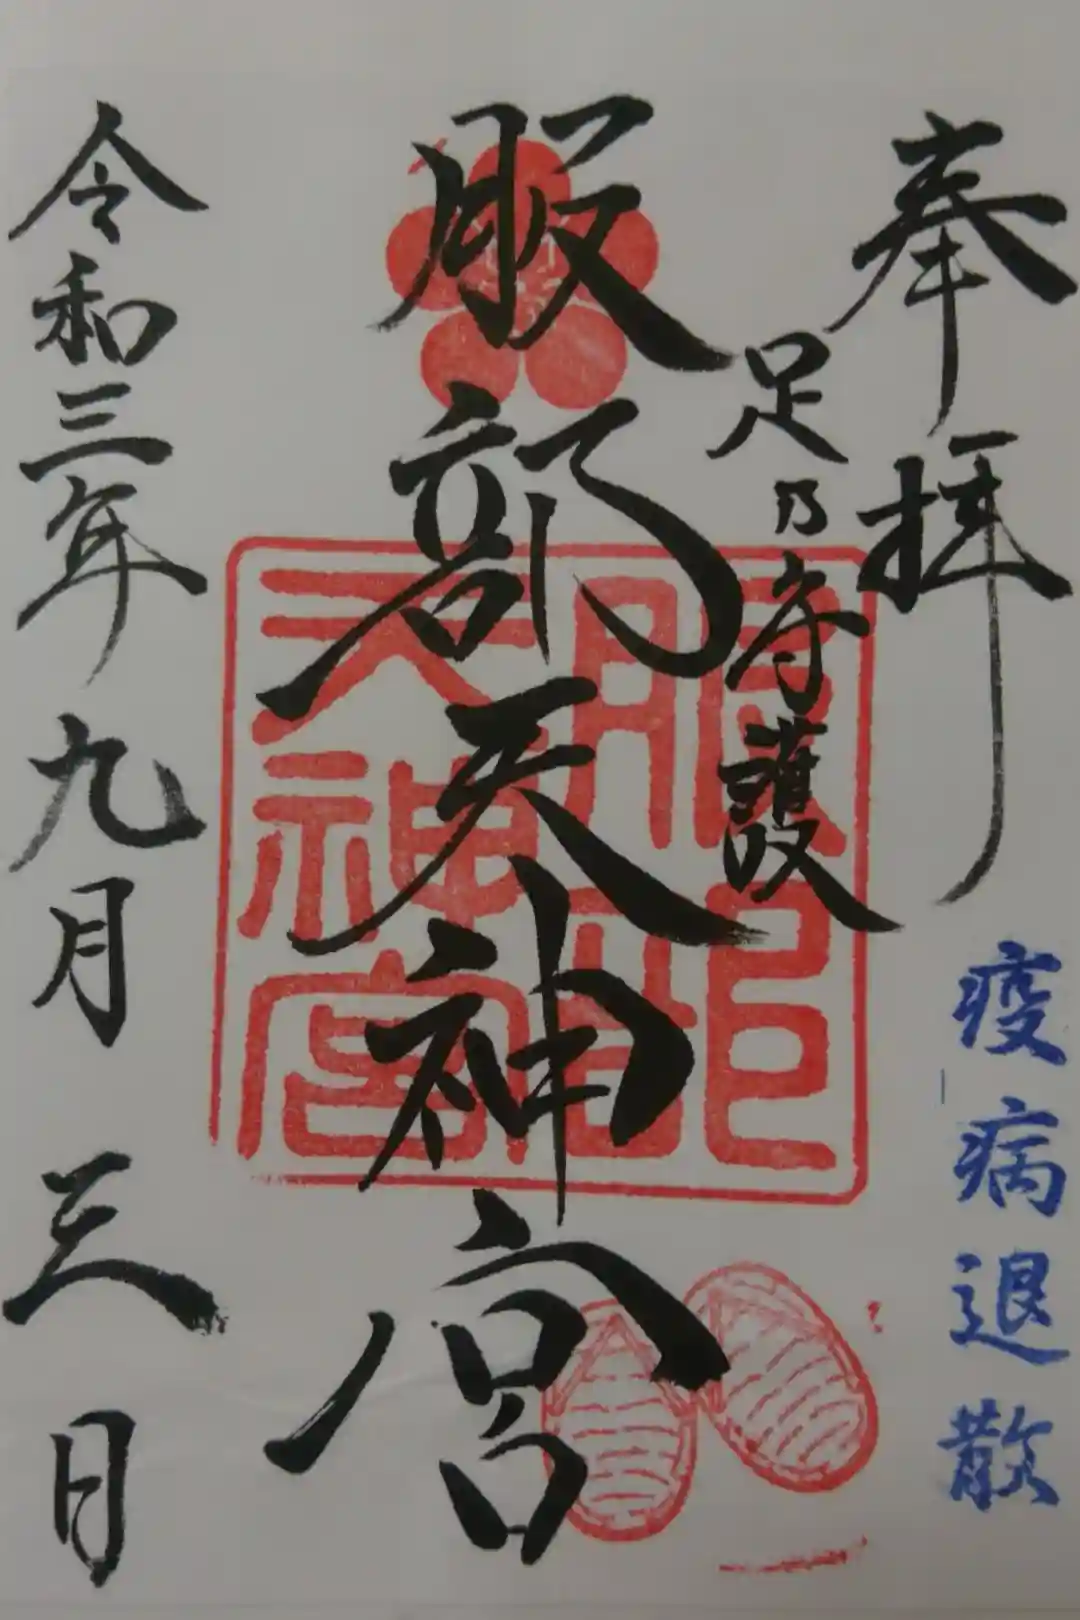 奉拝
疫病退散
足乃守護
服部天神宮
服部
天神宮
令和三年九月三日